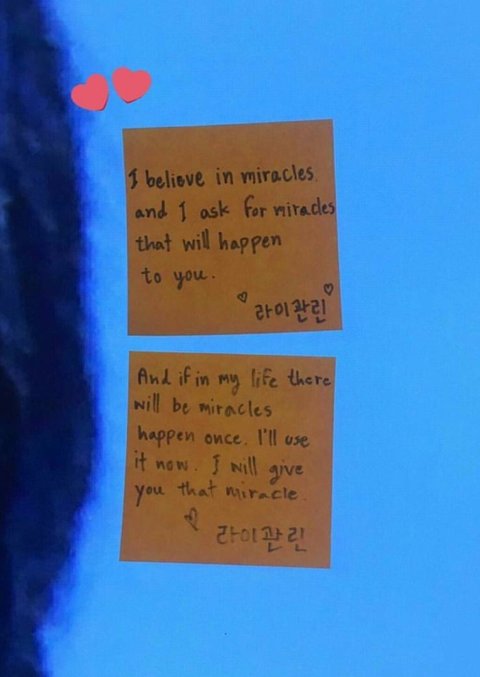 I believe in miracles.
and I ask for miracles
that will happen
to you.
라이관린
And if in my life there
will be miracles
happen once. I'll use
it now. I will give
you that miracle.
라이관린